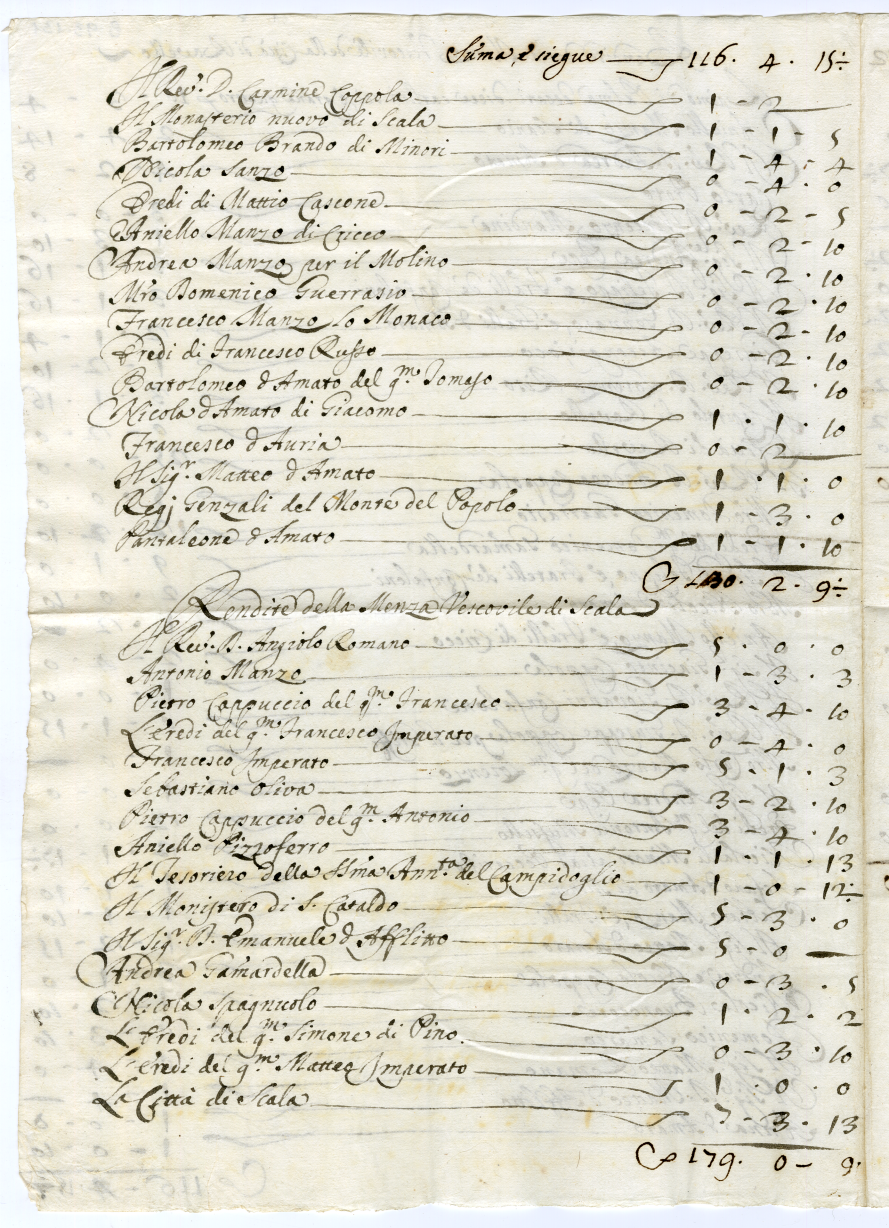 Suma e siegue 116. 4. 15 ÷
Il Rev. D. Carmine Coppola 1 - 2 —
Il Monasterio nuovo di Scala 1 - 1 - 5
Bartolomeo Brando di Minori 1 - 4 - 4
Nicola Sanzo 0 - 4 . 0
Eredi di Mattio Cascone 0 - 2 - 5
Aniello Manzo di Cicco 0 - 2 - 10
Andrea Manzo per il Molino 0 - 2 . 10
Mro Domenico Guerrasio 0 - 2 . 10
Francesco Manzo Lo Monaco 0 - 2 - 10
Eredi di Francesco Russo 0 - 2 . 10
Bartolomeo d'Amato del qm. Tomaso 0 - 2 . 10
Nicola d'Amato di Giacomo 1 . 1 . 10
Francesco d'Auria 0 - 2 —
Il Sigr. Matteo d'Amato 1 . 1 . 0
Regj Genzali del Monte del Popolo 1 - 3 . 0
Pantaleone d'Amato 1 - 1 . 10
130. 2. 9 ÷
Rendite della Menza Vescovile di Scala
Il Rev. D. Angiolo Romano 5 . 0 . 0
Antonio Manzo 1 - 3 . 3
Pietro Cappuccio del qm. Francesco 3 - 4 . 10
L'Eredi del qm. Francesco Imperato 0 - 4 . 0
Francesco Imperato 5 . 1 . 3
Sebastiano Oliva 3 - 2 . 10
Pietro Cappuccio del qm. Antonio 3 - 4 . 10
Aniello Pizzoferro 1 . 1 . 13
Il Tesoriero della SSma Annta. del Campidoglio 1 - 0 - 12 ÷
Il Monistero di S. Cataldo 5 - 3 . 0
Il Sigr. D. Emanuele d'Afflitto 5 - 0 —
Andrea Gamardella 0 - 3 . 5
Nicola Spagnuolo 1 . 2 . 2
L'Eredi del qm. Simone di Pino 0 - 3 . 10
L'Eredi del qm. Matteo Imperato 1 . 0 . 0
La Città di Scala 7 - 3 . 13
179. 0 - 9